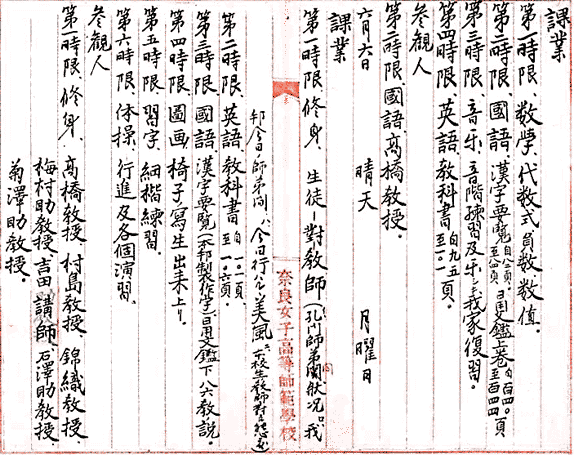 課業
第一時限、数学、代数式負数数値。
第二時限、國語 漢字要覧 日用文鑑上巻
第三時限、音楽、音階練習及楽シ我家復習。
第四時限、英語、教科書 自九五至一〇一頁。
参観人
第二時限、國語、高橋教授。
六月六日 晴天 月曜日
課業
第一時限、修身、生徒ー對教師(孔門師弟間ノ状況。我
邦今日師弟間ハ今日行ハルヽ美風
奈良女子高等師範學校
第二時限、英語、教科書 自一〇一頁至一〇六頁。
第三時限、國語、漢字要覧(本邦製作字)日用文鑑下
第四時限、圖画、椅子ノ寫生出来上リ。
第五時限、習字、細楷練習。
第六時限、体操、行進及各個演習。
参観人
第一時限、修身、高橋教授、村島教授、錦織教授、
梅村助教授、吉田講師、石澤助教授、
菊澤助教授。